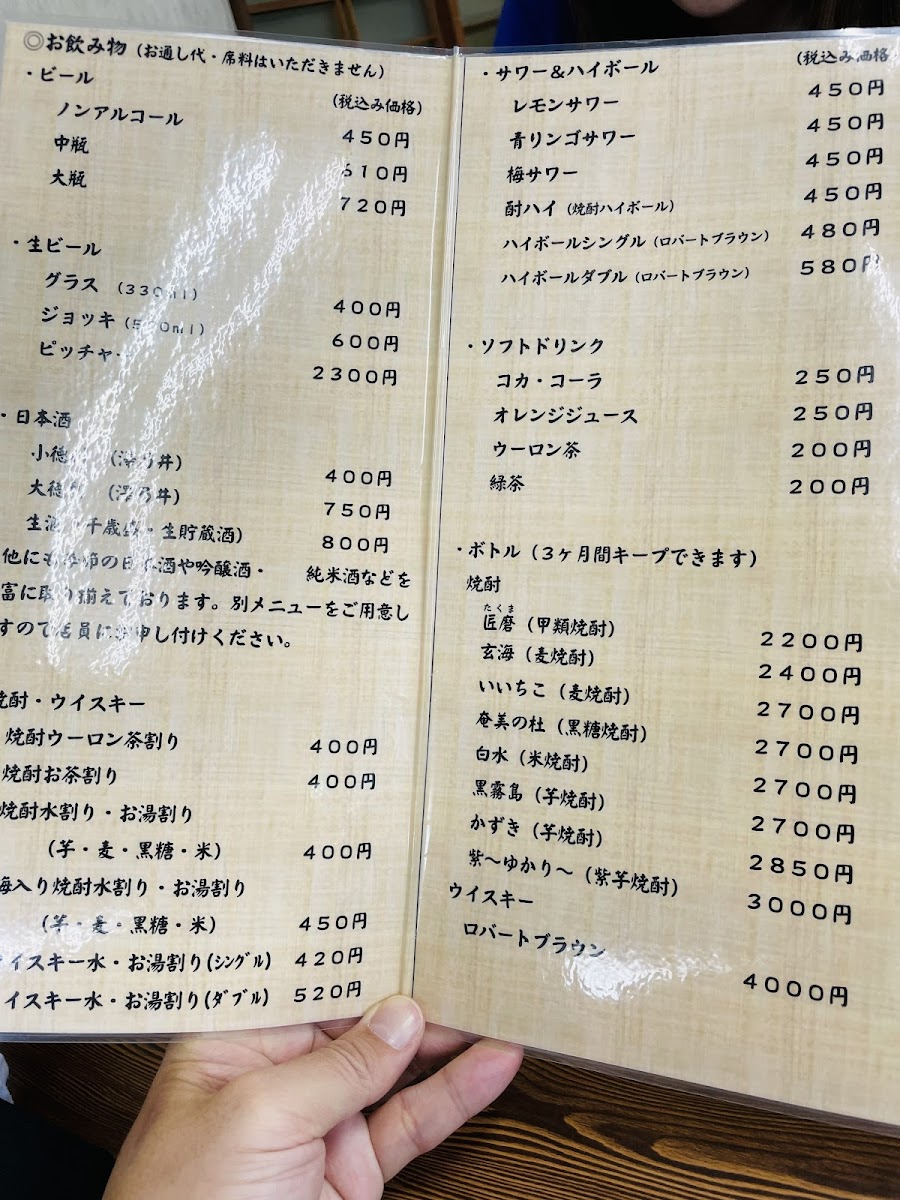 ◎お飲み物（お通し代・席料はいただきません）
・ビール
（税込み価格）
ノンアルコール 450円
中瓶 610円
大瓶 720円
・生ビール
グラス （330ml） 400円
ジョッキ 600円
ピッチャー 2300円
・日本酒
小徳 （澤乃井） 400円
大徳 （澤乃井） 750円
生酒 千歳盛・生貯蔵酒） 800円
他にも季節の日本酒や吟醸酒・ 純米酒などを
富に取り揃えております。別メニューをご用意し
すので店員にお申し付けください。
焼酎・ウイスキー
焼酎ウーロン茶割り 400円
焼酎お茶割り 400円
焼酎水割り・お湯割り
（芋・麦・黒糖・米） 400円
入り焼酎水割り・お湯割り
（芋・麦・黒糖・米） 450円
イスキー水・お湯割り(ｼﾝｸﾞﾙ) 420円
イスキー水・お湯割り(ﾀﾞﾌﾞﾙ) 520円
・サワー＆ハイボール
（税込み価格
レモンサワー 450円
青リンゴサワー 450円
梅サワー 450円
酎ハイ（焼酎ハイボール） 450円
ハイボールシングル（ロバートブラウン） 480円
ハイボールダブル（ロバートブラウン） 580円
・ソフトドリンク
コカ・コーラ 250円
オレンジジュース 250円
ウーロン茶 200円
緑茶 200円
・ボトル（３ヶ月間キープできます）
焼酎
たくま
匠磨（甲類焼酎） 2200円
玄海（麦焼酎） 2400円
いいちこ（麦焼酎） 2700円
奄美の杜（黒糖焼酎） 2700円
白水（米焼酎） 2700円
黒霧島（芋焼酎） 2700円
かずき（芋焼酎） 2850円
紫～ゆかり～（紫芋焼酎） 3000円
ウイスキー
ロバートブラウン 4000円